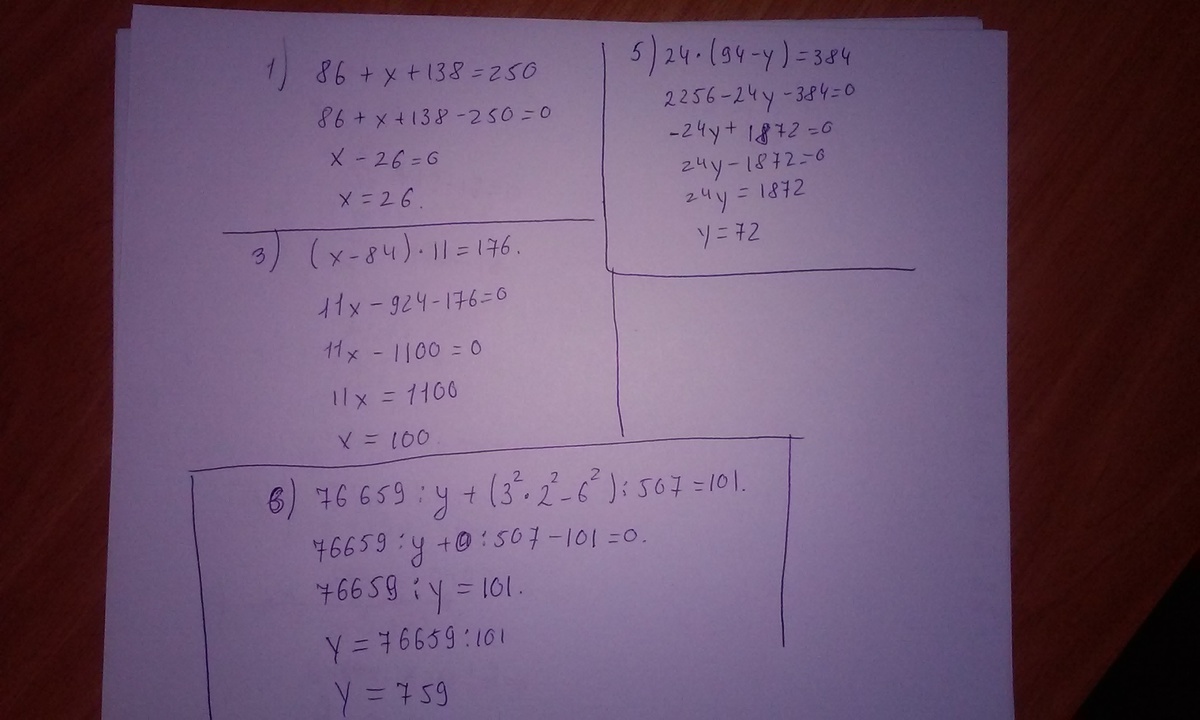 1) 86 + x + 138 = 250
86 + x + 138 - 250 = 0
x - 26 = 0
x = 26.
3) (x - 84) · 11 = 176.
11x - 924 - 176 = 0
11x - 1100 = 0
11x = 1100
x = 100
5) 24 · (94 - y) = 384
2256 - 24y - 384 = 0
-24y + 1872 = 0
24y - 1872 = 0
24y = 1872
y = 72
6) 76 659 : y + (3² · 2² - 6²) : 507 = 101.
76659 : y + 0 : 507 - 101 = 0.
76659 : y = 101.
y = 76659 : 101
y = 759